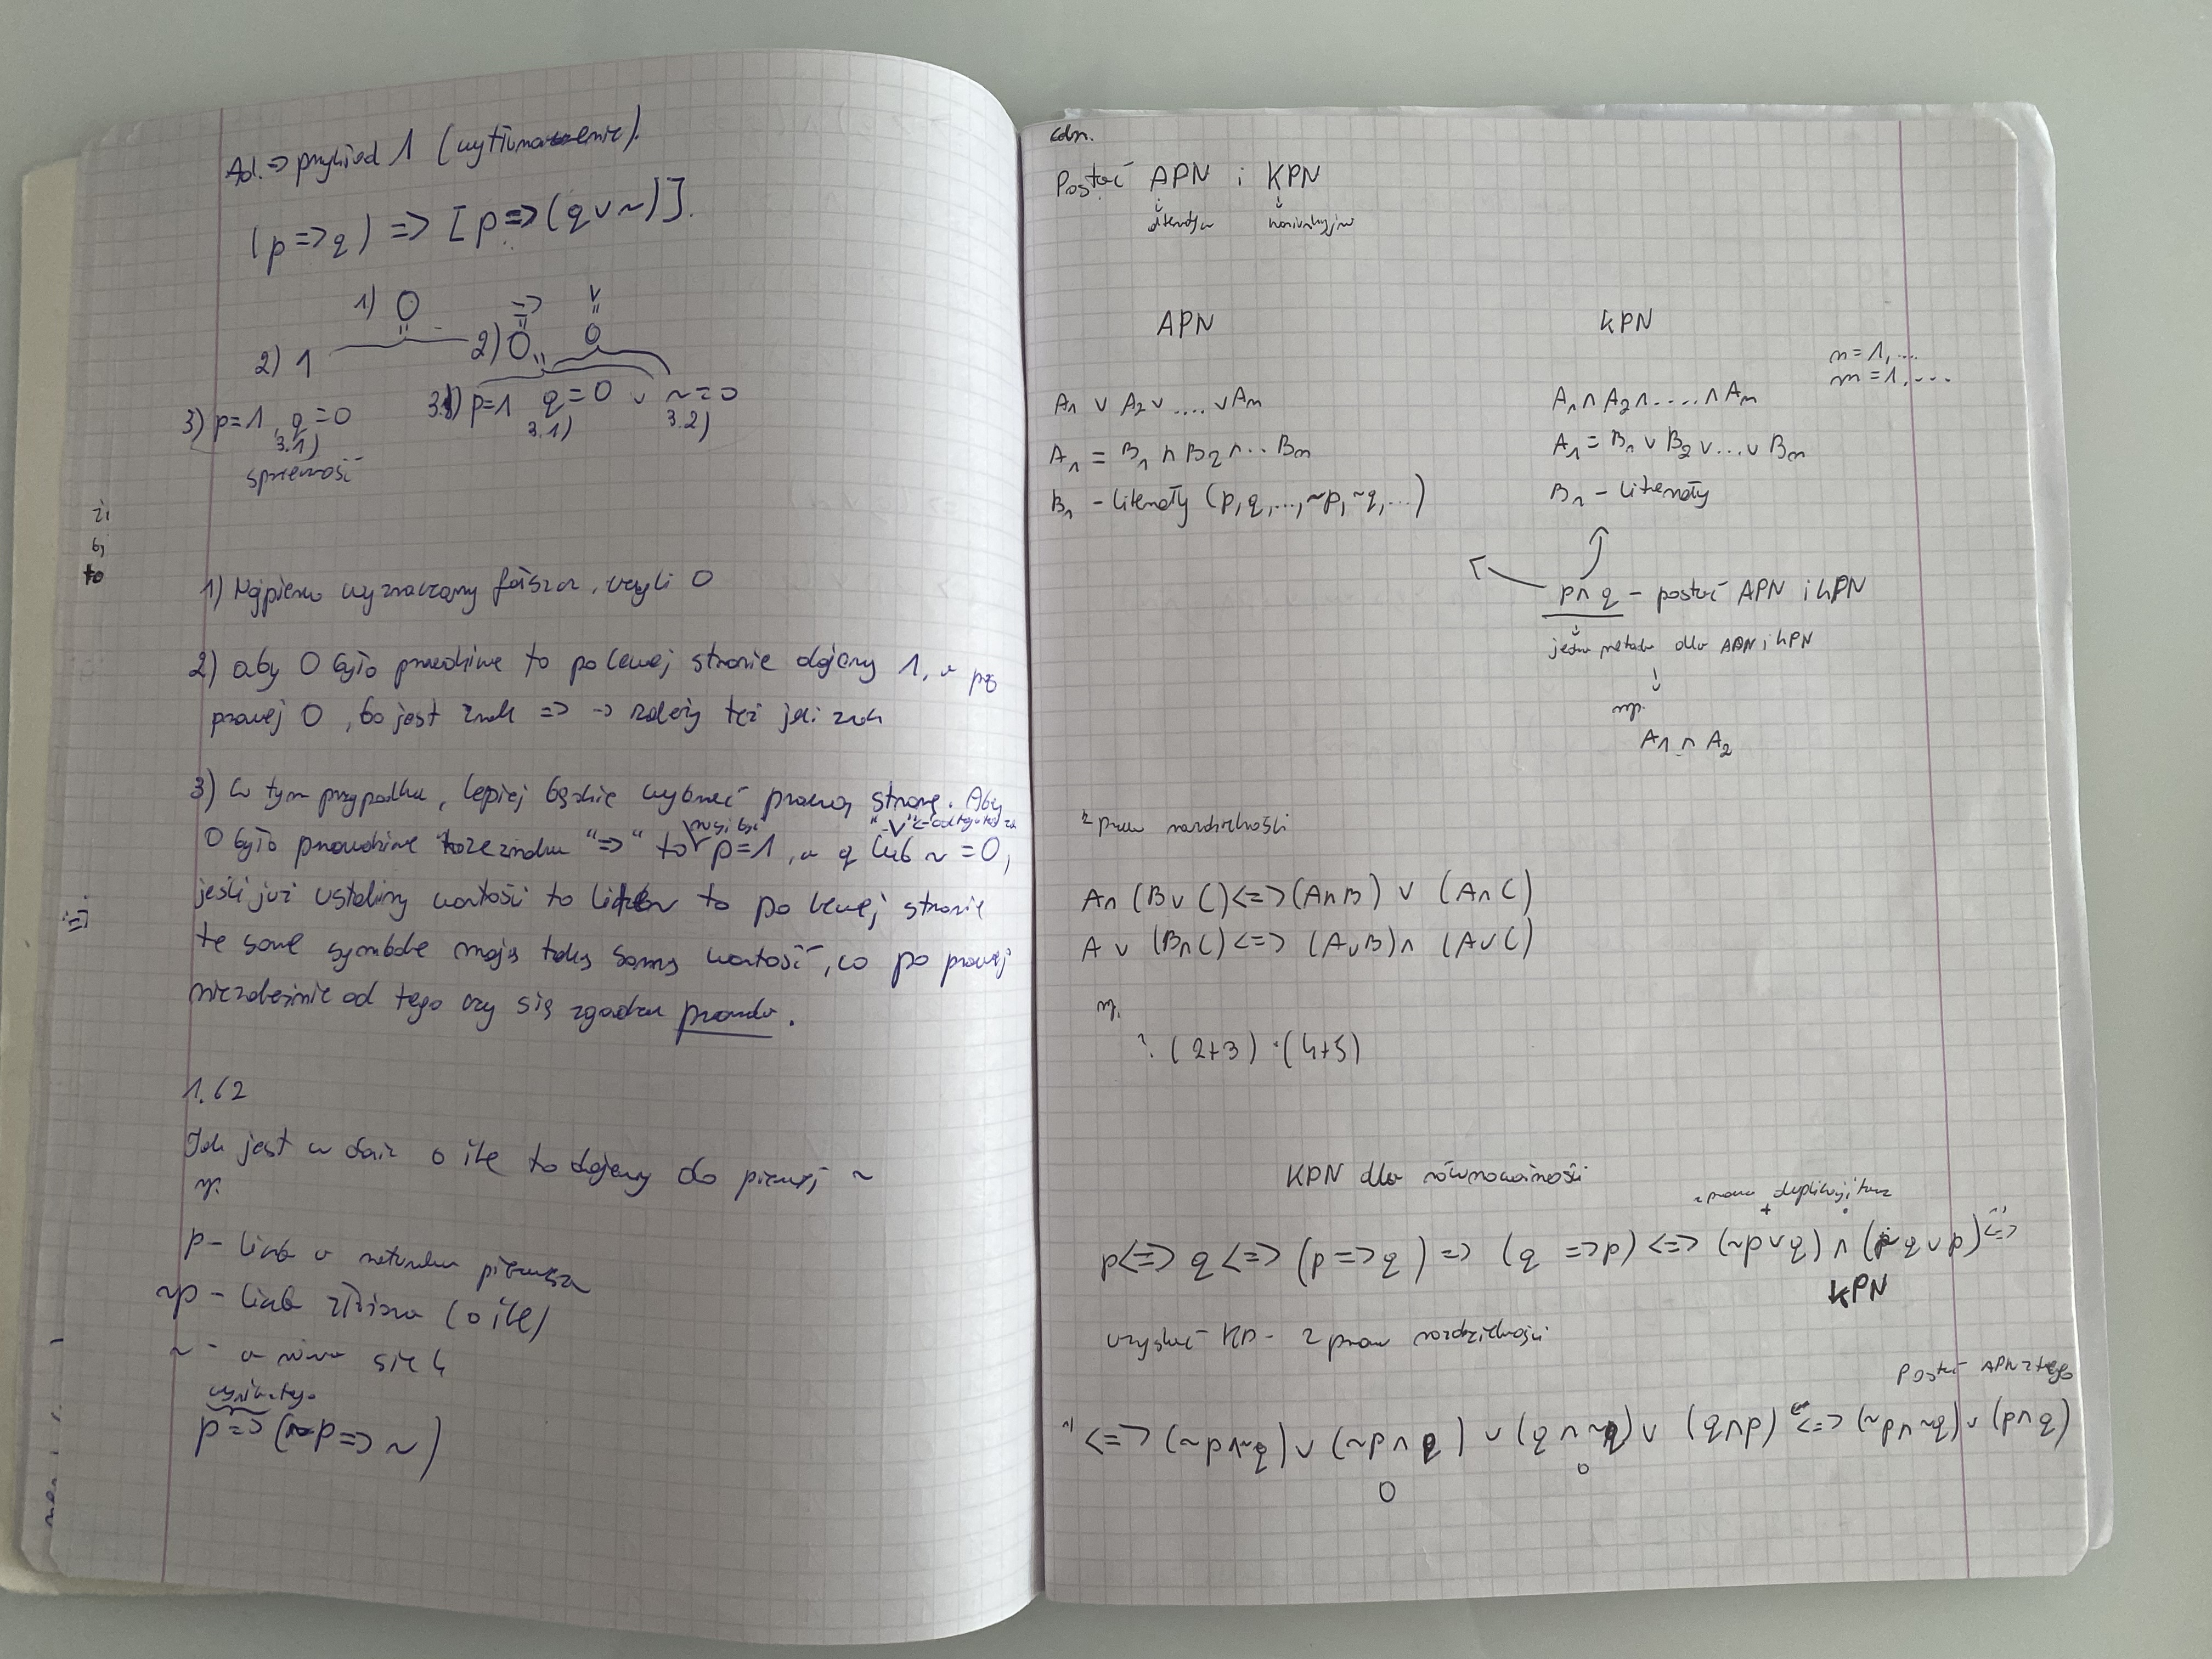 Ad. => przykład 1 (wytłumaczenie).
(p => q) => [p => (q ∨ ~)].
1) 0 => ∨
2) 1 2) 0 0
3) p=1, q=0 3.1) p=1 q=0 ∨ ~=0
3.1) 3.1) 3.2)
sprzeczność
1) Najpierw wyznaczamy fałsz, czyli 0
2) aby 0 było prawdziwe to po lewej stronie dajemy 1, a po
prawej 0, bo jest znak => -> zależy też jaki znak
3) W tym przypadku, lepiej będzie wybrać prawą stronę. Aby
musi być "∨" <-
0 było prawdziwe ze znaku "=>" to p=1, a q lub ~ = 0,
jeśli już ustalimy wartości to po lewej stronie
te same symbole mają taką samą wartość, co po prawej
niezależnie od tego czy się zgadza prawda.
1.62
Jak jest w dair o ile to dajemy do pierwszej ~
np.
p - liczba a naturalna pierwsza
~p - liczba złożona (o ile)
~ - a równa się 4
p => (~p => ~)
cdn.
Postać APN i KPN
APN KPN
n=1,...
m=1,....
A1 ∨ A2 ∨ .... ∨ An A1 ∧ A2 ∧ ..... ∧ An
A1 = B1 ∧ B2 ∧ ... Bm A1 = B1 ∨ B2 ∨ ... ∨ Bm
B1 - literały (p, q, ..., ~p, ~q, ...) B1 - literały
p ∧ q - postać APN i KPN
jedna metoda dla APN i KPN
np.
A1 ∧ A2
z praw rozdzielności
A ∧ (B ∨ C) <=> (A ∧ B) ∨ (A ∧ C)
A ∨ (B ∧ C) <=> (A ∨ B) ∧ (A ∨ C)
np.
? (2+3) · (4+5)
KPN dla równoważności
z prawa
p <=> q <=> (p => q) => (q => p) <=> (~p ∨ q) ∧ (~q ∨ p) <=>
KPN
uzyskać KD - z praw rozdzielności
Postać APN z tego
<=> (~p ∧ ~q) ∨ (~p ∧ p) ∨ (q ∧ ~q) ∨ (q ∧ p) <=> (~p ∧ ~q) ∨ (p ∧ q)
0 0